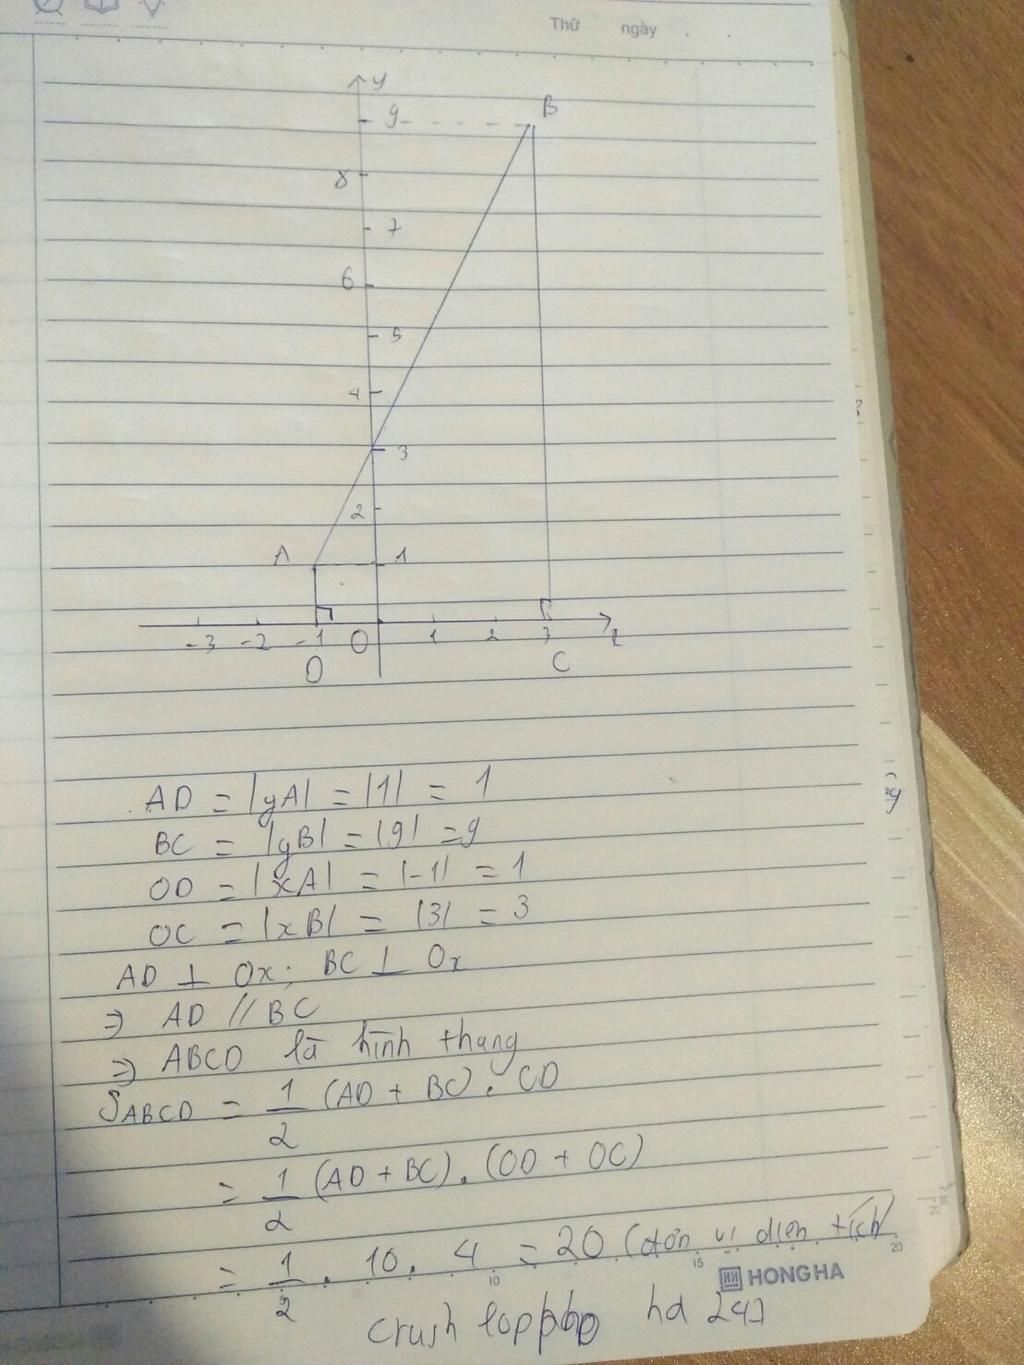 Thứ ngày
y
B
9
8
7
6
5
4
3
2
A 1
-3 -2 -1 O 1 2 3 x
D C
AD = |yA| = |1| = 1
BC = |yB| = |9| = 9
OD = |xA| = |-1| = 1
OC = |xB| = |3| = 3
AD ⊥ Ox; BC ⊥ Ox
⇒ AD // BC
⇒ ABCD là hình thang
SABCD = 1/2 (AD + BC) . CD
= 1/2 (AD + BC) . (OD + OC)
= 1/2 . 10 . 4 = 20 (đơn vị diện tích)
10 15 20
HONG HA
crush